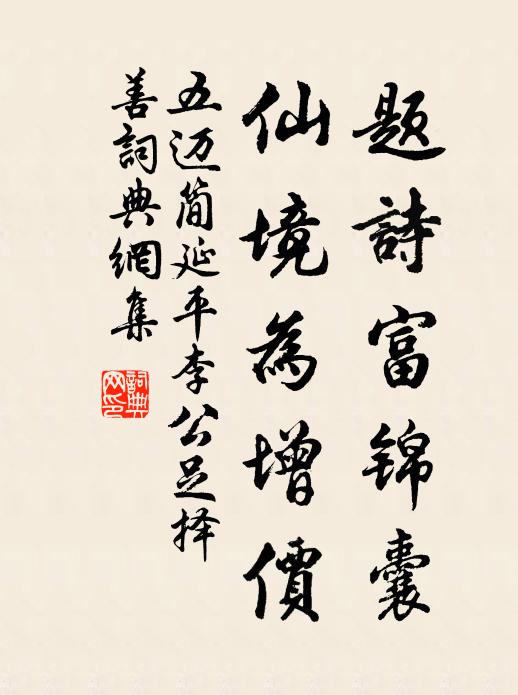 题詩富锦囊
仙境為增價
五迈简延平李公足择
善詞典網集
詞典
网印